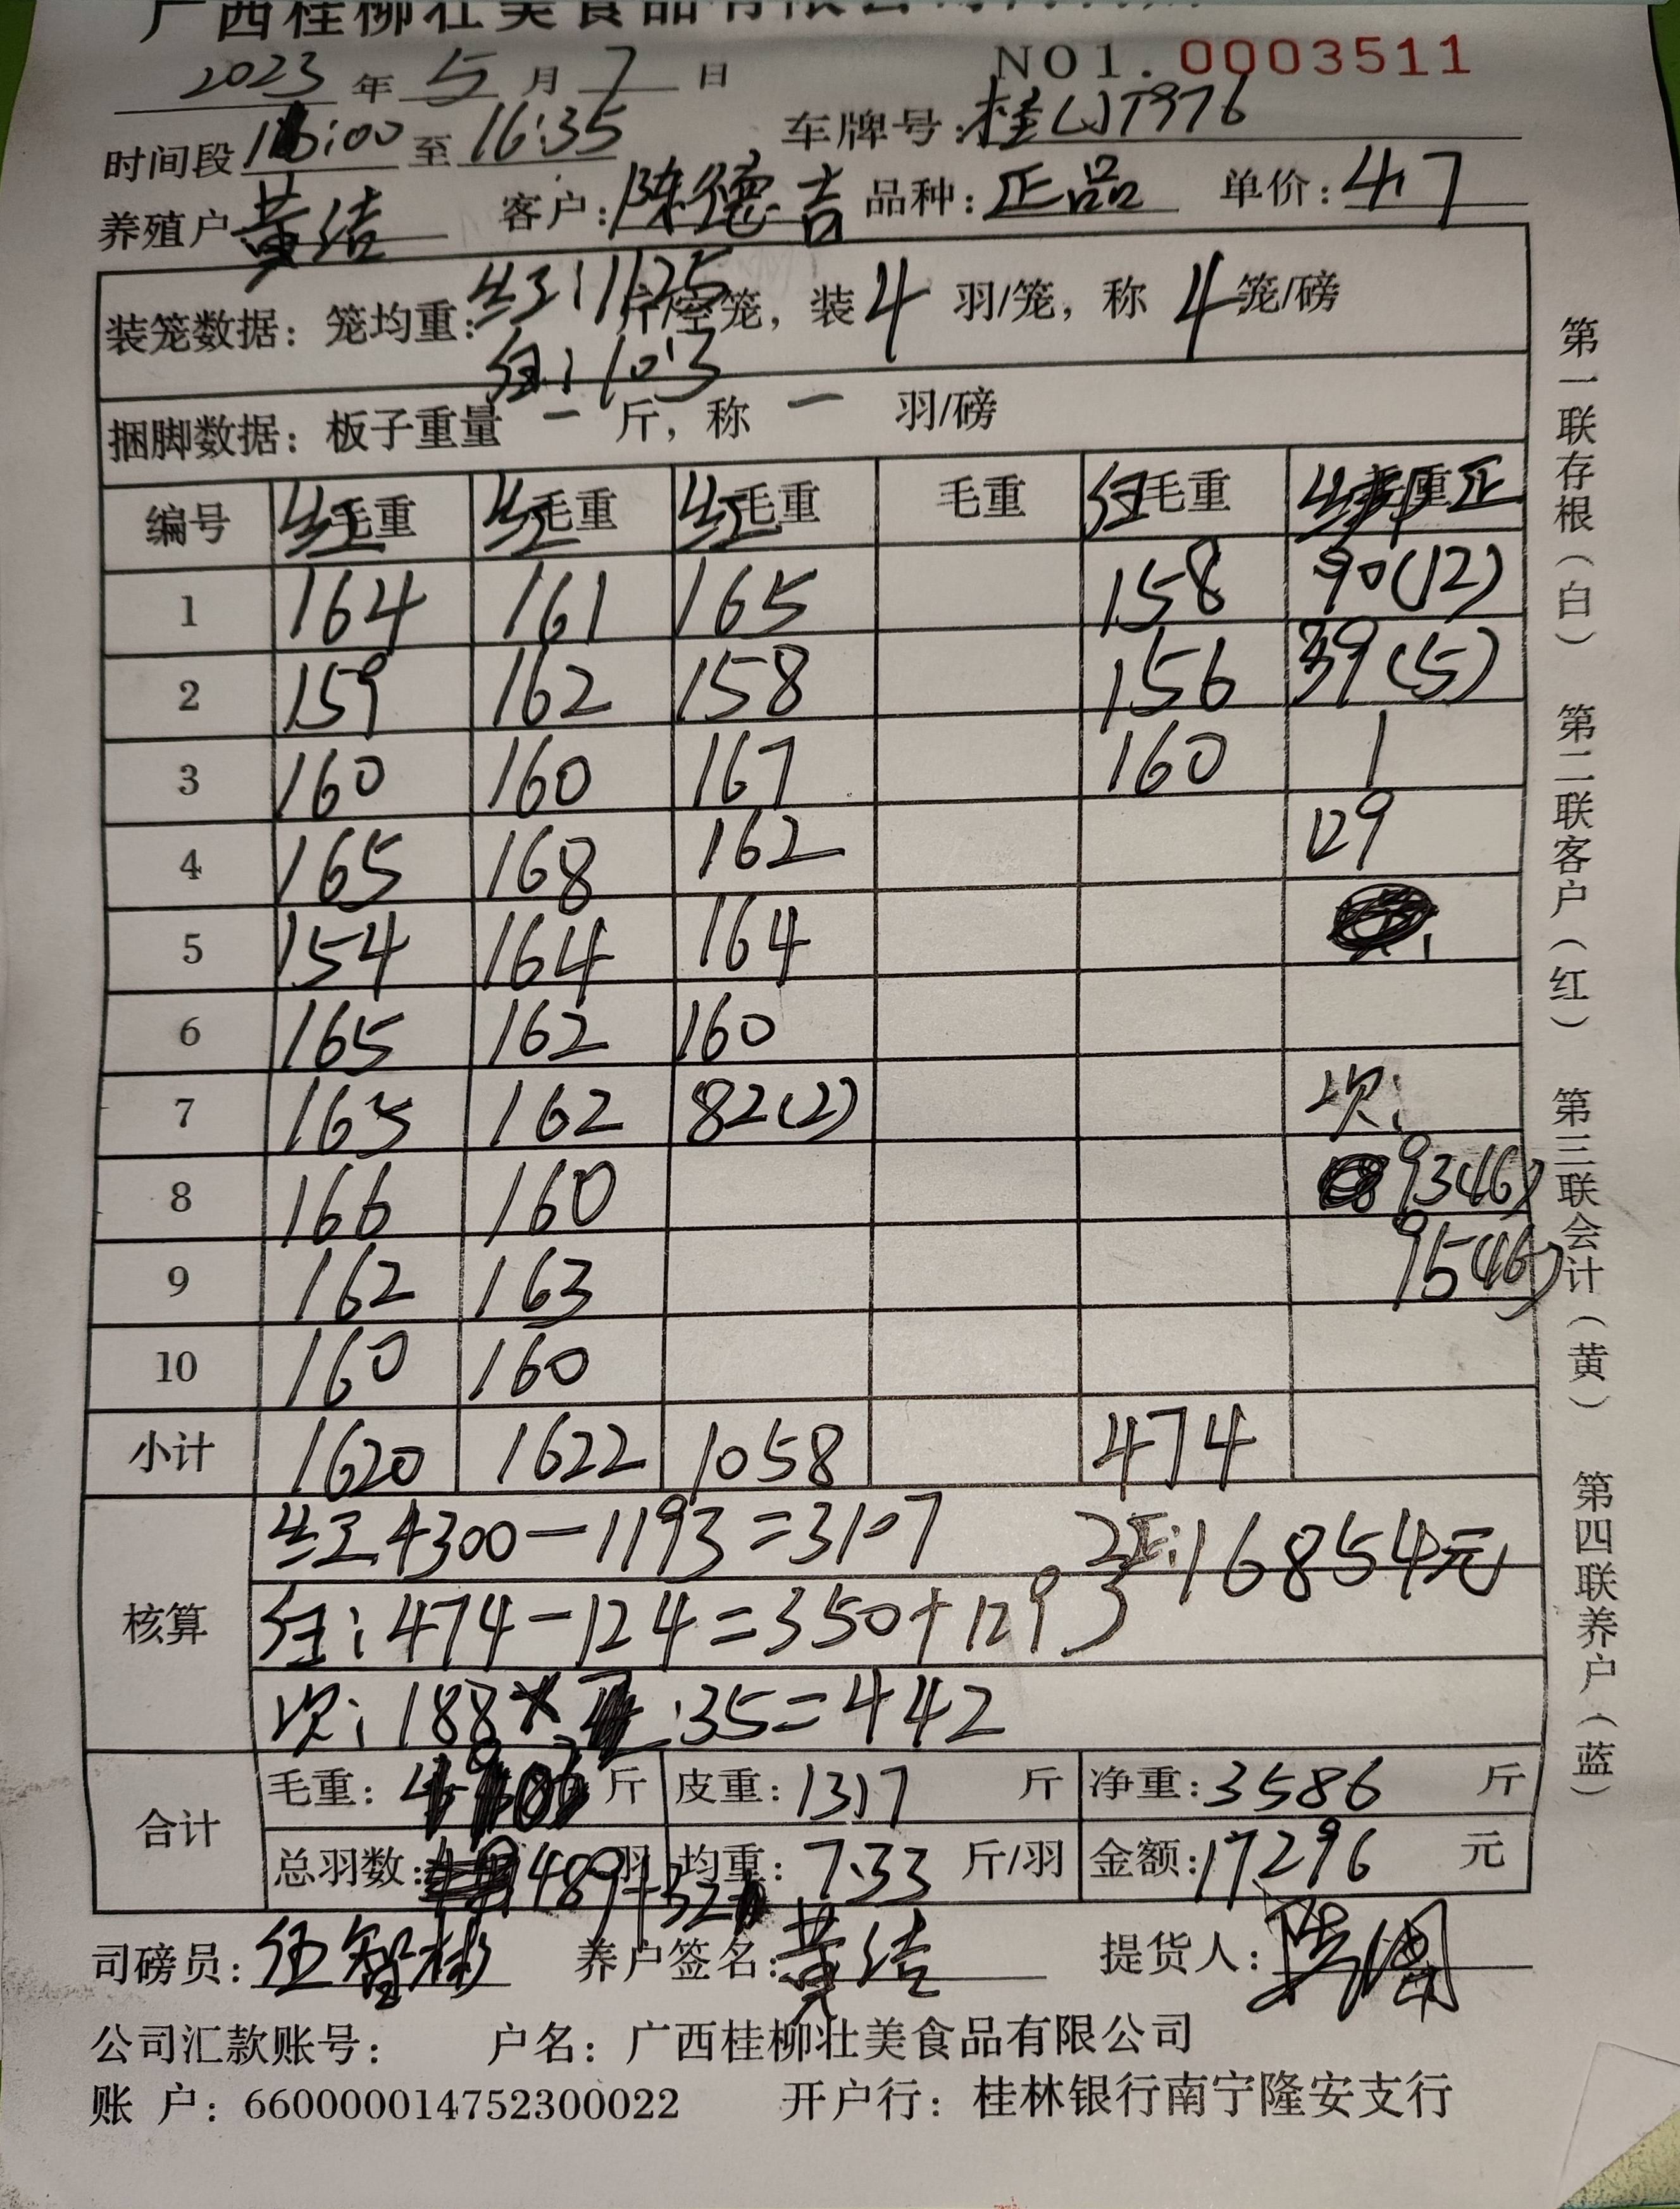 广西桂柳壮美食品有限公司
2023 年 5 月 7 日 NO1. 0003511
时间段 16:00 至 16:35 车牌号:
养殖户 黄结 客户: 陈德吉 品种: 正品 单价: 4.7
装笼数据: 笼均重: 11.25 斤/空笼, 装 4 羽/笼, 称 4 笼/磅
红: 10.3
捆脚数据: 板子重量 一 斤, 称 一 羽/磅
编号 毛重 毛重 毛重 毛重 红毛重 毛重 正
1 164 161 165 158 90(12)
2 159 162 158 156 39(5)
3 160 160 167 160 1
4 165 168 162 129
5 154 164 164
6 165 162 160
7 165 162 82(2) 次:
8 166 160 93(16)
9 162 163 95(16)
10 160 160
小计 1620 1622 1058 474
4300-1193=3107 正: 16854元
核算 红: 474-124=350+129
次: 188× 2.35=442
合计 毛重: 斤 皮重: 1317 斤 净重: 3586 斤
总羽数: 489+32 羽 均重: 7.33 斤/羽 金额: 17296 元
司磅员: 伍智彬 养户签名: 黄结 提货人:
公司汇款账号: 户名: 广西桂柳壮美食品有限公司
账 户: 660000014752300022 开户行: 桂林银行南宁隆安支行
第一联存根（白） 第二联客户（红） 第三联会计（黄） 第四联养户（蓝）